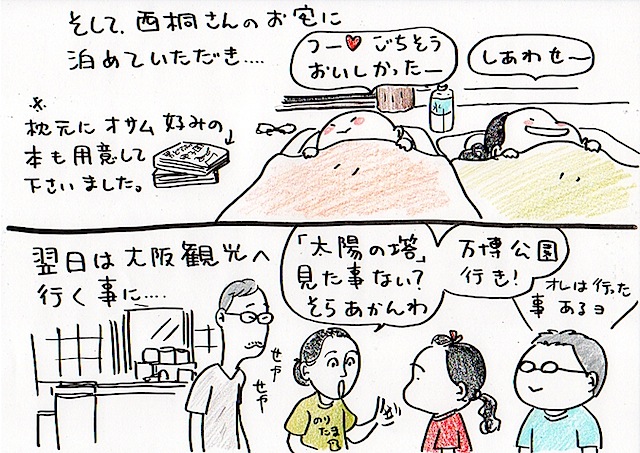 そして、西桐さんのお宅に
泊めていただき‥‥
フー♥ごちそう
おいしかったー
しあわせ〜
※
枕元にオサム好みの
本も用意して
下さいました。
翌日は大阪観光へ
行く事に‥‥
「太陽の塔」
見た事ない?
そらあかんわ
万博公園
行き!
オレは行った
事あるヨ
せやせや
のり
たま